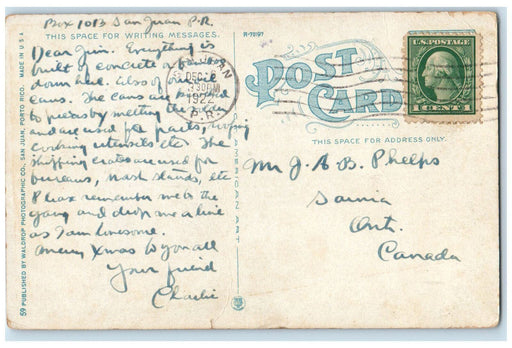 Box 1013 San Juan P.R.
THIS SPACE FOR WRITING MESSAGES.
Dear Jim. Everything is
built of concrete or
down here. Also of
cans. The cans are
to pieces by melting the
and are used for parts,
cooking utensils etc. The
shipping crates are used for
bureaus, wash stands, etc
Please remember me to the
gang and drop me a line
as I am lonesome.
Merry Xmas to you all
Your friend
Charlie
MADE IN U.S.A.
59 PUBLISHED BY WALDROP PHOTOGRAPHIC CO., SAN JUAN, PORTO RICO.
R-78197
POST
CARD
DEC
330PM
1922
P.R.
U.S. POSTAGE
1 CENT 1
THIS SPACE FOR ADDRESS ONLY.
Mr J. A. B. Phelps
Sarnia
Ont.
Canada